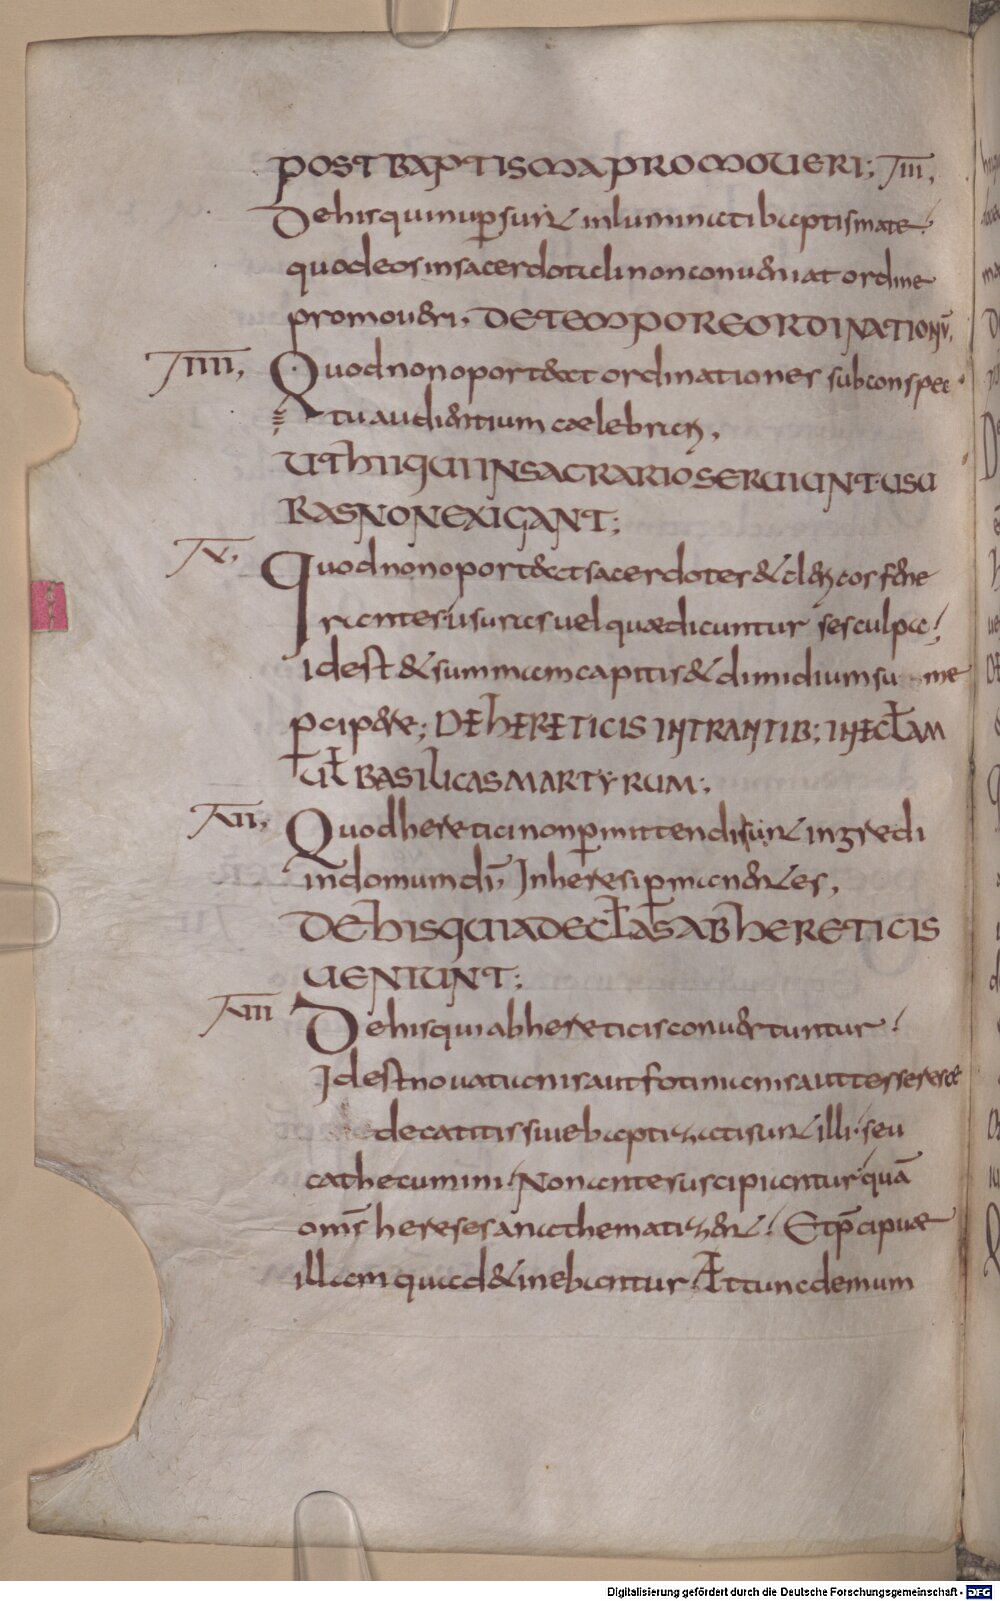 POST BAPTISMA PROMOUERI; TIII,
De his qui nup̱ sunt inluminati baptismate.
quod eos in sacerdotali non conueniat ordine
promoueri, DE TEMPORE ORDINATIONŪ,
TIIII, Quod non oporteat ordinationes sub conspec
tu audientium caelebrari,
UT hII QUI IN SACRARIO SERUIUNT USU
RAS NON EXIGANT;
TV, Quod non oporteat sacerdotes & cleros fene
rantes usuras uel quae dicuntur sesculpae!
id est & summam capitis & dimidium su me
p̱cipere; DE hERETICIS INTRANTIB; IN ECŁAM
UŁ BASILICAS MARTYRUM;
TVII, Quod heretici non p̱mittendi sunt ingredi
in domum dī, In heresi p̱manentes,
DE hIS QUI AD ECŁAS AB hERETICIS
UENIUNT;
TVIII De his qui ab hereticis conuertuntur!
Id est nouatianis aut fotinianis aut tesseresce
decatitis siue baptizati sunt illi seu
cathecumini. Non ante suscipiantur quā
oms̄ hereses anathematizent! Et p̄cipuae
illam qua detinebantur. Et tunc demum
Digitalisierung gefördert durch die Deutsche Forschungsgemeinschaft - DFG